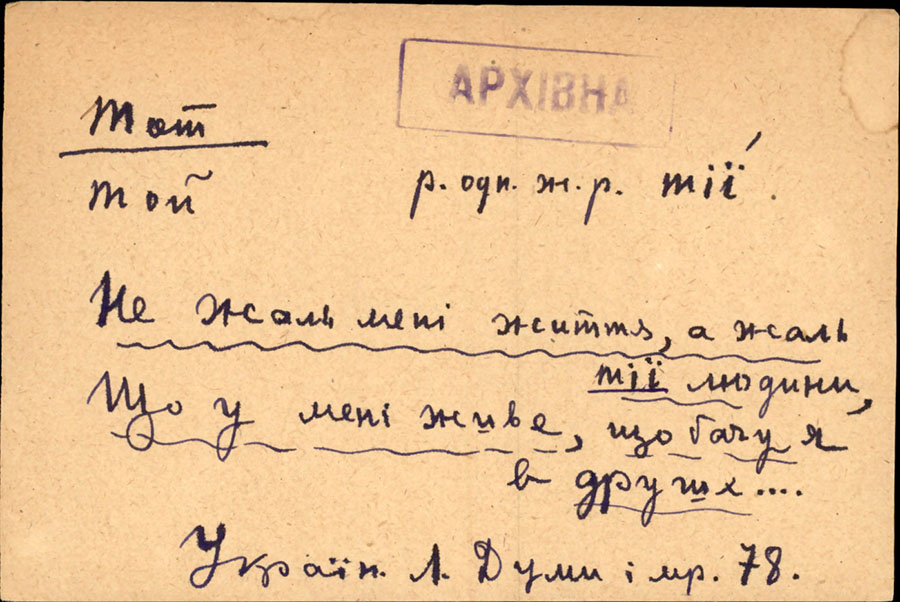 АРХІВНА
Тот
Той р. одн. ж. р. тії́.
Не жаль мені життя, а жаль
тії людини,
Що у мені живе, що бачу я
в других....
Україн. Л. Думи і мр. 78.